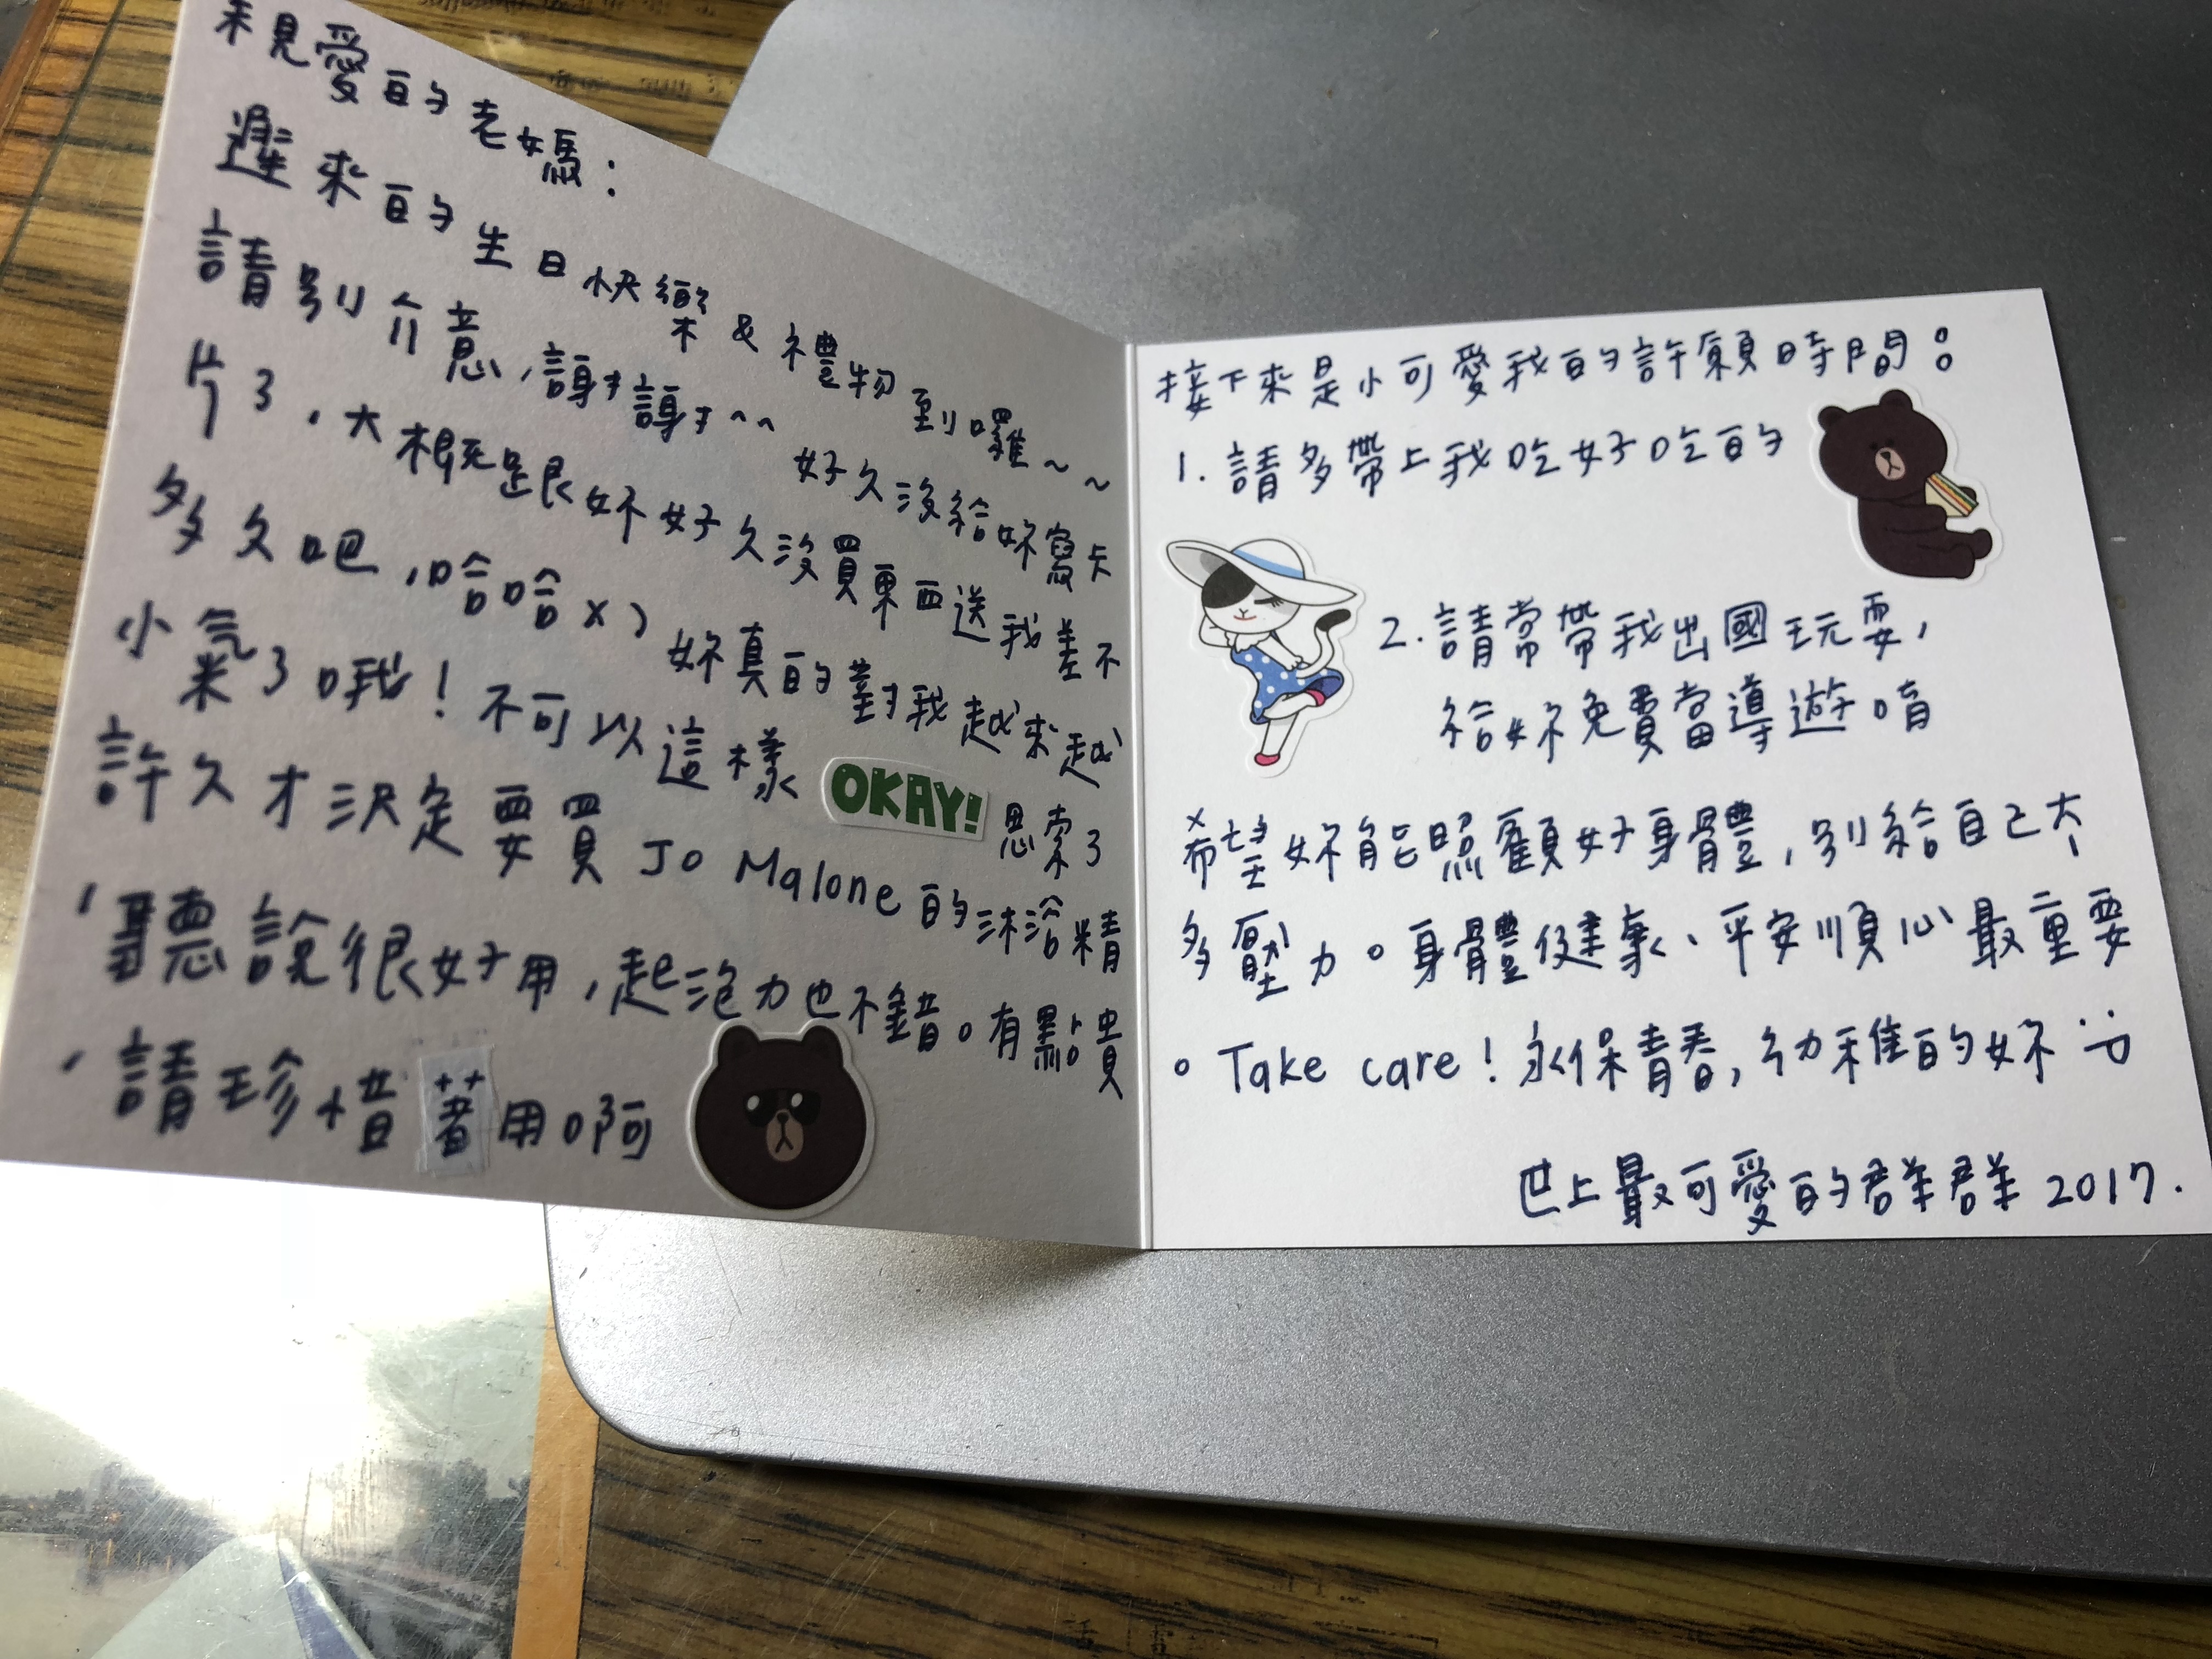 親愛的老媽：
遲來的生日快樂 & 禮物到囉~~
請別介意，謝謝~~ 好久沒給妳寫卡
片了，大概是跟妳好久沒買東西送我差不
多久吧，哈哈 x) 妳真的對我越來越
小氣了哦！不可以這樣 OKAY! 思索了
許久才決定要買 Jo Malone 的沐浴精
，聽說很好用，起泡力也不錯。有點貴
，請珍惜著用啊
接下來是小可愛我的許願時間：
1. 請多帶上我吃好吃的
2. 請常帶我出國玩耍，
給妳免費當導遊唷
希望妳能照顧好身體，別給自己太
多壓力。身體健康、平安順心最重要
。Take care！永保青春，幼稚的妳 :D
世上最可愛的群群 2017.